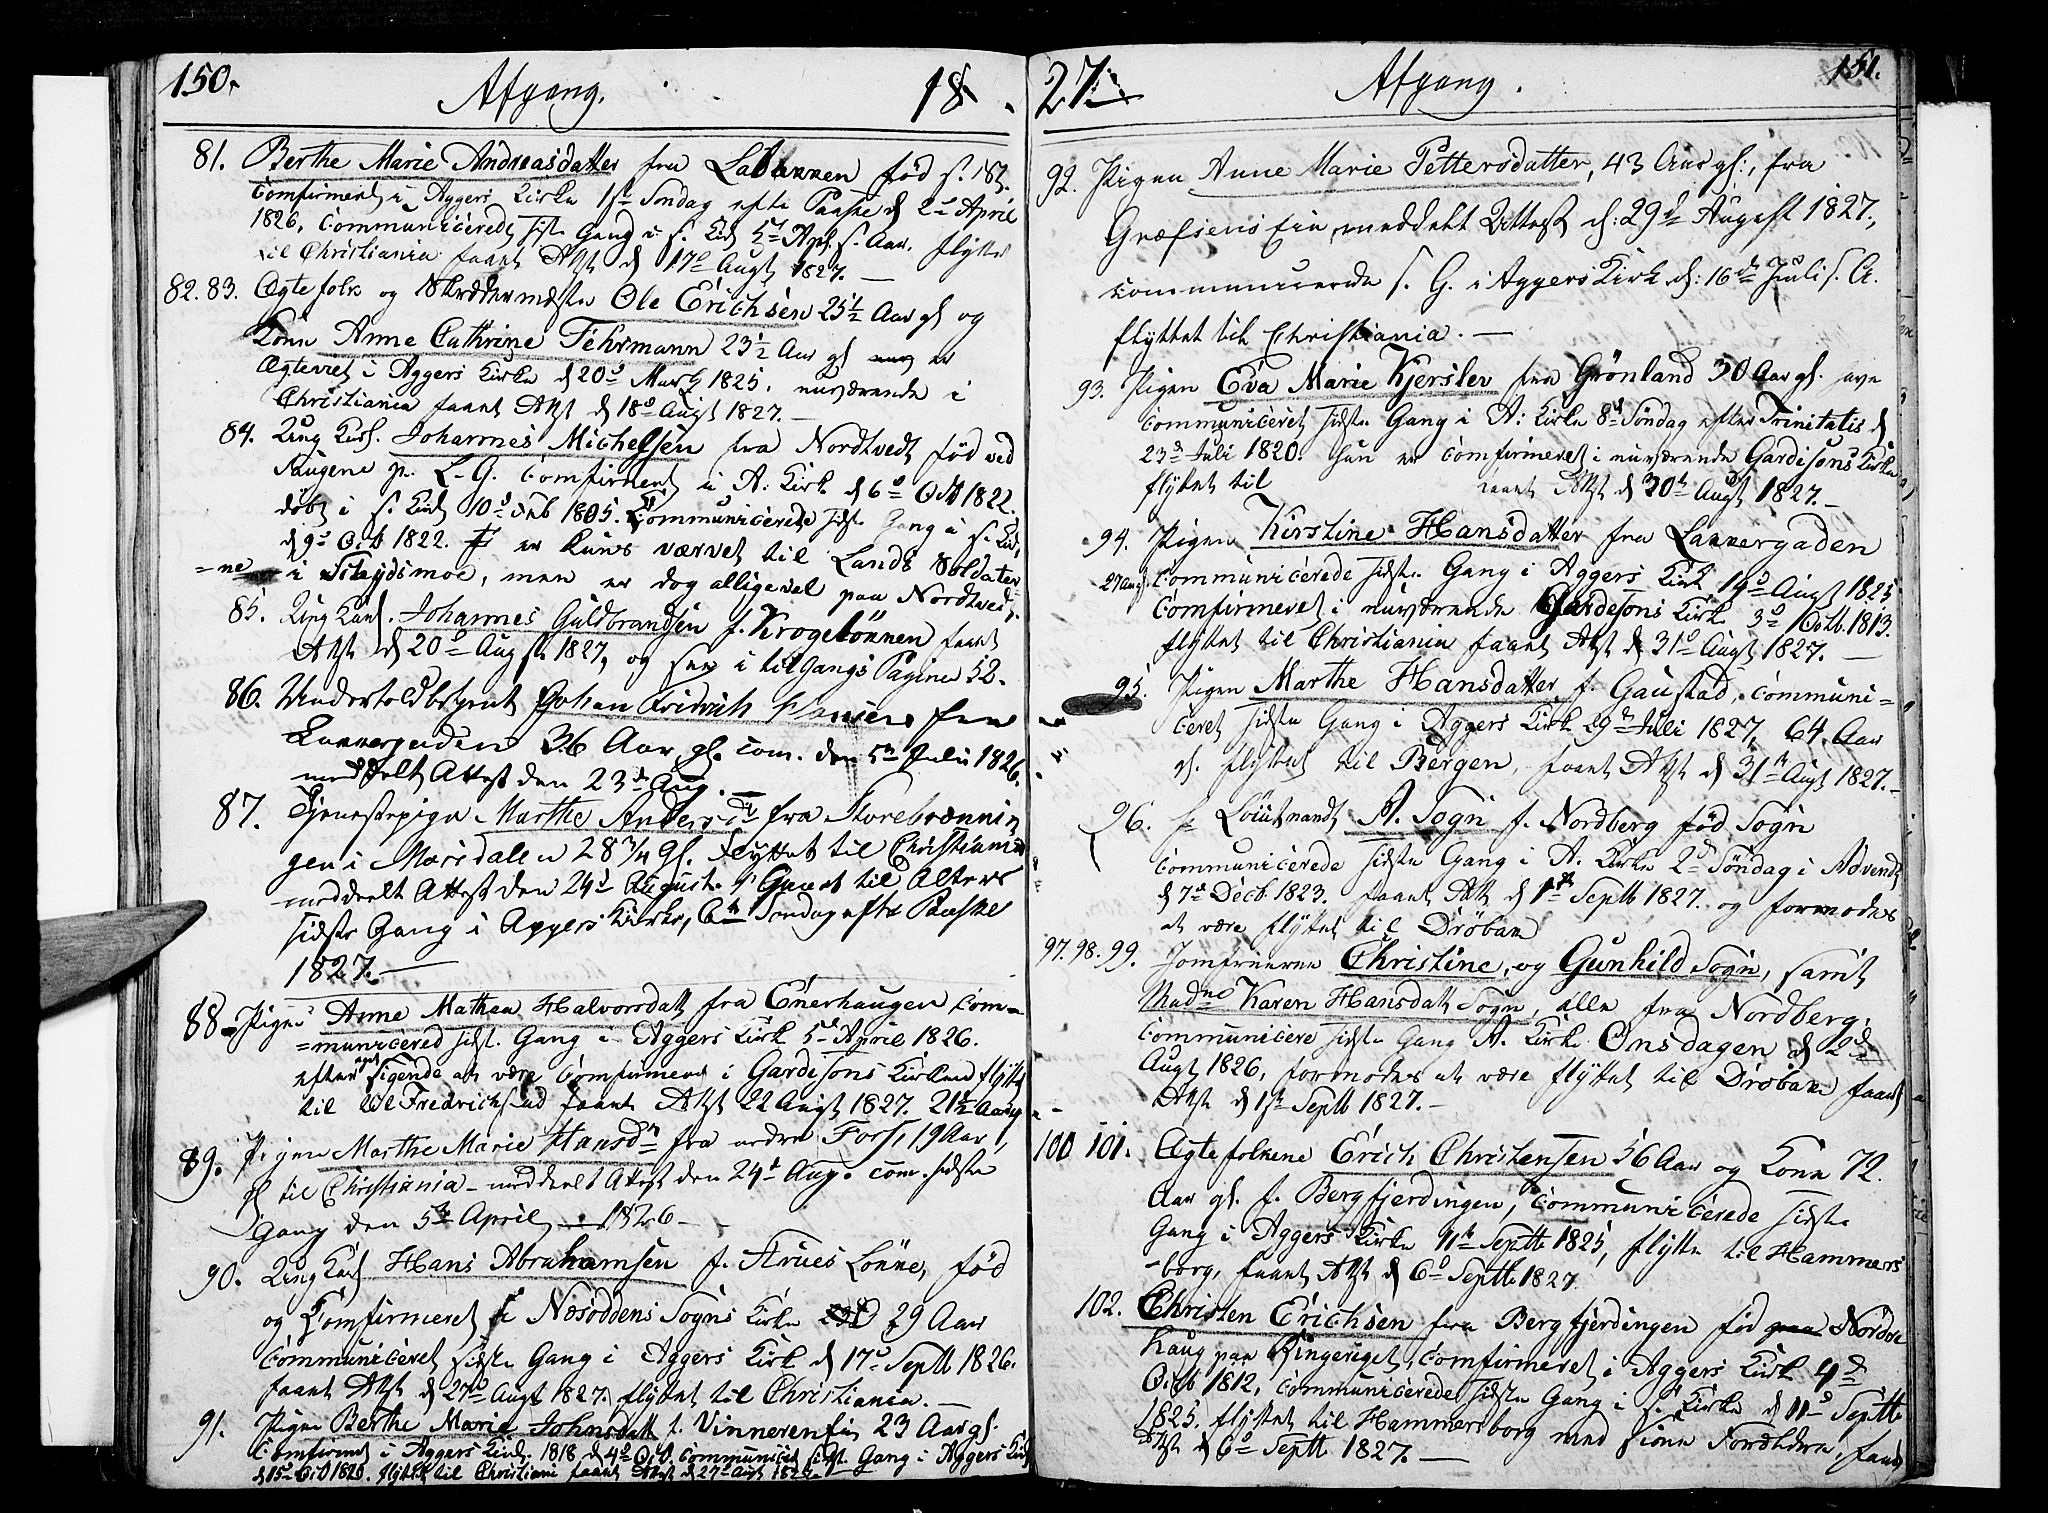 150.
Afgang.
18
81. Berthe Marie Andreasdatter fra
Comfirmeret i Aggers Kirke 1st Sondag efter Paaske d 2d April
1826, Communicerede sidste Gang i s. Kirk 5t Apl s. Aar. flytter
til Christiania faaet Attst d 17d Augt 1827.
82. 83. Ægtefolk og Skreddermester Ole Erichsen 25½ Aar gl og
Kone Anne Cathrine Fehrmann 23½ Aar gl er
Ægteviet i Aggers Kirke d 20d Marty 1825. nuværende i
Christiania faaet Attst d 18d Augt 1827.
84. Ung Karl. Johannes Michelsen fra Nordtvedt fød ved
Comfirmeret i A: Kirk d 6d Octb 1822.
døbt i s. Kirk 10d Feb 1805. Communicerede sidste Gang i s. Kirk
d 9d Octb 1822. er kuns værvet til Lands Soldater
=ne i men er dog alligevel paa Nordtvedt.
85. Ung Karl. Johannes Guldbrandsen f. Krogelønnen faaet
Attst d 20d Augst 1827, og see i tilgangs Pagina 52.
86. Undertoldbetjent Johan Fridrich Hansen fra
36 Aar gl. com. den 5te Julii 1826.
meddelt Attest den 23d Aug.
87. Tjenestepige Marthe Andersdr fra Storebrænnin
gen i Marisdalen 28 3/4 gl. flyttet til Christiania
meddeelt Attest den 24d August. Gaaet til Alters
sidste Gang i Aggers Kirke, 6te Søndag efter Paaske
1827.
88. Pigen Anne Mathea Halvorsdatt fra Enerhaugen Com=
=municered sidst. Gang i Aggers Kirk 5d April 1826.
efter sigende at være Comfirmeret i Gardisons Kirken flytt
til Fredrichstad faaet Attst 22 Augst 1827. 21½ Aar gl
89. Pigen Marthe Marie Hansdr fra nedre Foss, 19 Aar,
gl til Christiania – meddeelt Attest den 24d Aug. com. sidste
Gang den 5te April 1826
90. Ung Karl Hans Abrahamsen f. Strues Lønne, fød
og Comfirmeret i Næsoddens Sogns Kirke 29 Aar
Communiceret sidste Gang i Aggers Kirk d 17d Septb 1826.
faaet Attst d 27d Augt 1827. flyttet til Christiania.
91. Pigen Berthe Marie Johnsdatt f. Vinnereneie 23 Aar gl.
Comfirmeret i Aggers Kirk, 1818 d 4d Oct. Communicer sidst Gang i Aggers Kirk
d 15d Oct 1820. flyttet til Christiani faaet Attst d 27d Augt 1827.
27.
Afgang.
151.
92. Pigen Anne Marie Pettersdatter, 43 Aar gl:, fra
Græfsens Eie, meddeelt Attest d: 29d August 1827,
communicerede s. G. i Aggers Kirk d: 16de Juli s. A.
flyttet til Christiania.
93. Pigen Eva Marie Kjerslev fra Grönland 30 Aar gl.
Communiceret sidste Gang i A: Kirke 8d Söndag efter Trinitatis d
23d Juli 1820. hun er Comfirmeret i nuværende Gardisons Kirke
flyttet til faaet Attst d 30t Augt 1827.
94. Pigen Kirstine Hansdatter fra
27 aar gl. Communicerede sidste Gang i Aggers Kirk, 19d Augt 1825
Comfirmeret i nuværende Gardesons Kirk 3d Octb. 1813.
flyttet til Christiania faaet Attst d 31d Augt 1827.
95. Pigen Marthe Hansdatter f. Gaustad. Communi=
ceret sidste Gang i Aggers Kirk 29d Juli 1827, 64. Aar
gl. flyttet til Bergen, faaet Attst d 31t Augt 1827.
96. Hr Löutnandt A. Sogn f. Nordberg fød Sogn
Communicerede sidste Gang i A. Kirke 2d Söndag i Advendt
d 7d Decb. 1823. faaet Attst d 1st Septb 1827. og formodes
at være flyttet til Dröbak
97. 98. 99. Jomfruerne Christine, og Gunhild Sogn, samt
Madme Karen Hansdatt Sogn, alle fra Nordberg,
Communicere sidste Gang A. Kirke Onsdagen d 2d
Augt 1826, formodes at være flyttet til Dröbak faaet
Attst d 1st Septb 1827.
100 101. Ægtefolkene Erich Christensen 56 Aar og Kone 72.
Aar gl. f. Bergfjerdingen, Communicerede sidste
Gang i Aggers Kirke 11t Septb 1825, flytte til Hammers
=borg, faaet Attst d 6d Septb 1827
102. Christen Erichsen fra Bergfjerdingen fød Nordre
haug paa Ringeriget, Comfirmeret i Aggers Kirk 4d
Octb 1812, Communicerede sidste Gang i s. Kirke d 11d Septb
1825. flyttet til Hammersborg med sine Forældre, faaet
Attst d 6d Septb 1827.